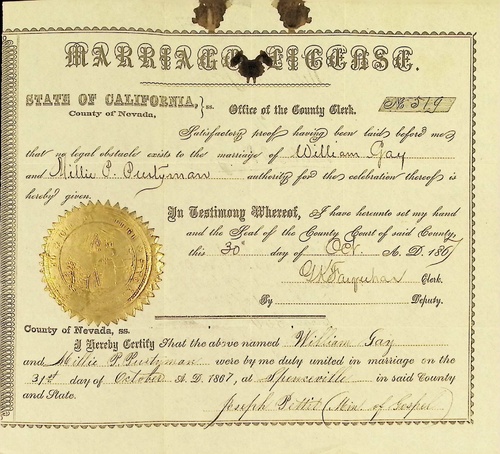 MARRIAGE LICENSE.
STATE OF CALIFORNIA, } ss. Office of the County Clerk. No 519
County of Nevada,
Satisfactory proof having been laid before me
that no legal obstacle exists to the marriage of William Gay
and Millie P. authority for the celebration thereof is
hereby given.
In Testimony Whereof, I have hereunto set my hand
and the Seal of the County Court of said County,
this 30th day of Oct A. D. 1867
Clerk.
By Deputy.
County of Nevada, ss.
I Hereby Certify That the above named William Gay
and Millie P. were by me duly united in marriage on the
31st day of October A. D. 1867, at in said County
and State.
Joseph (Min. of Gospel